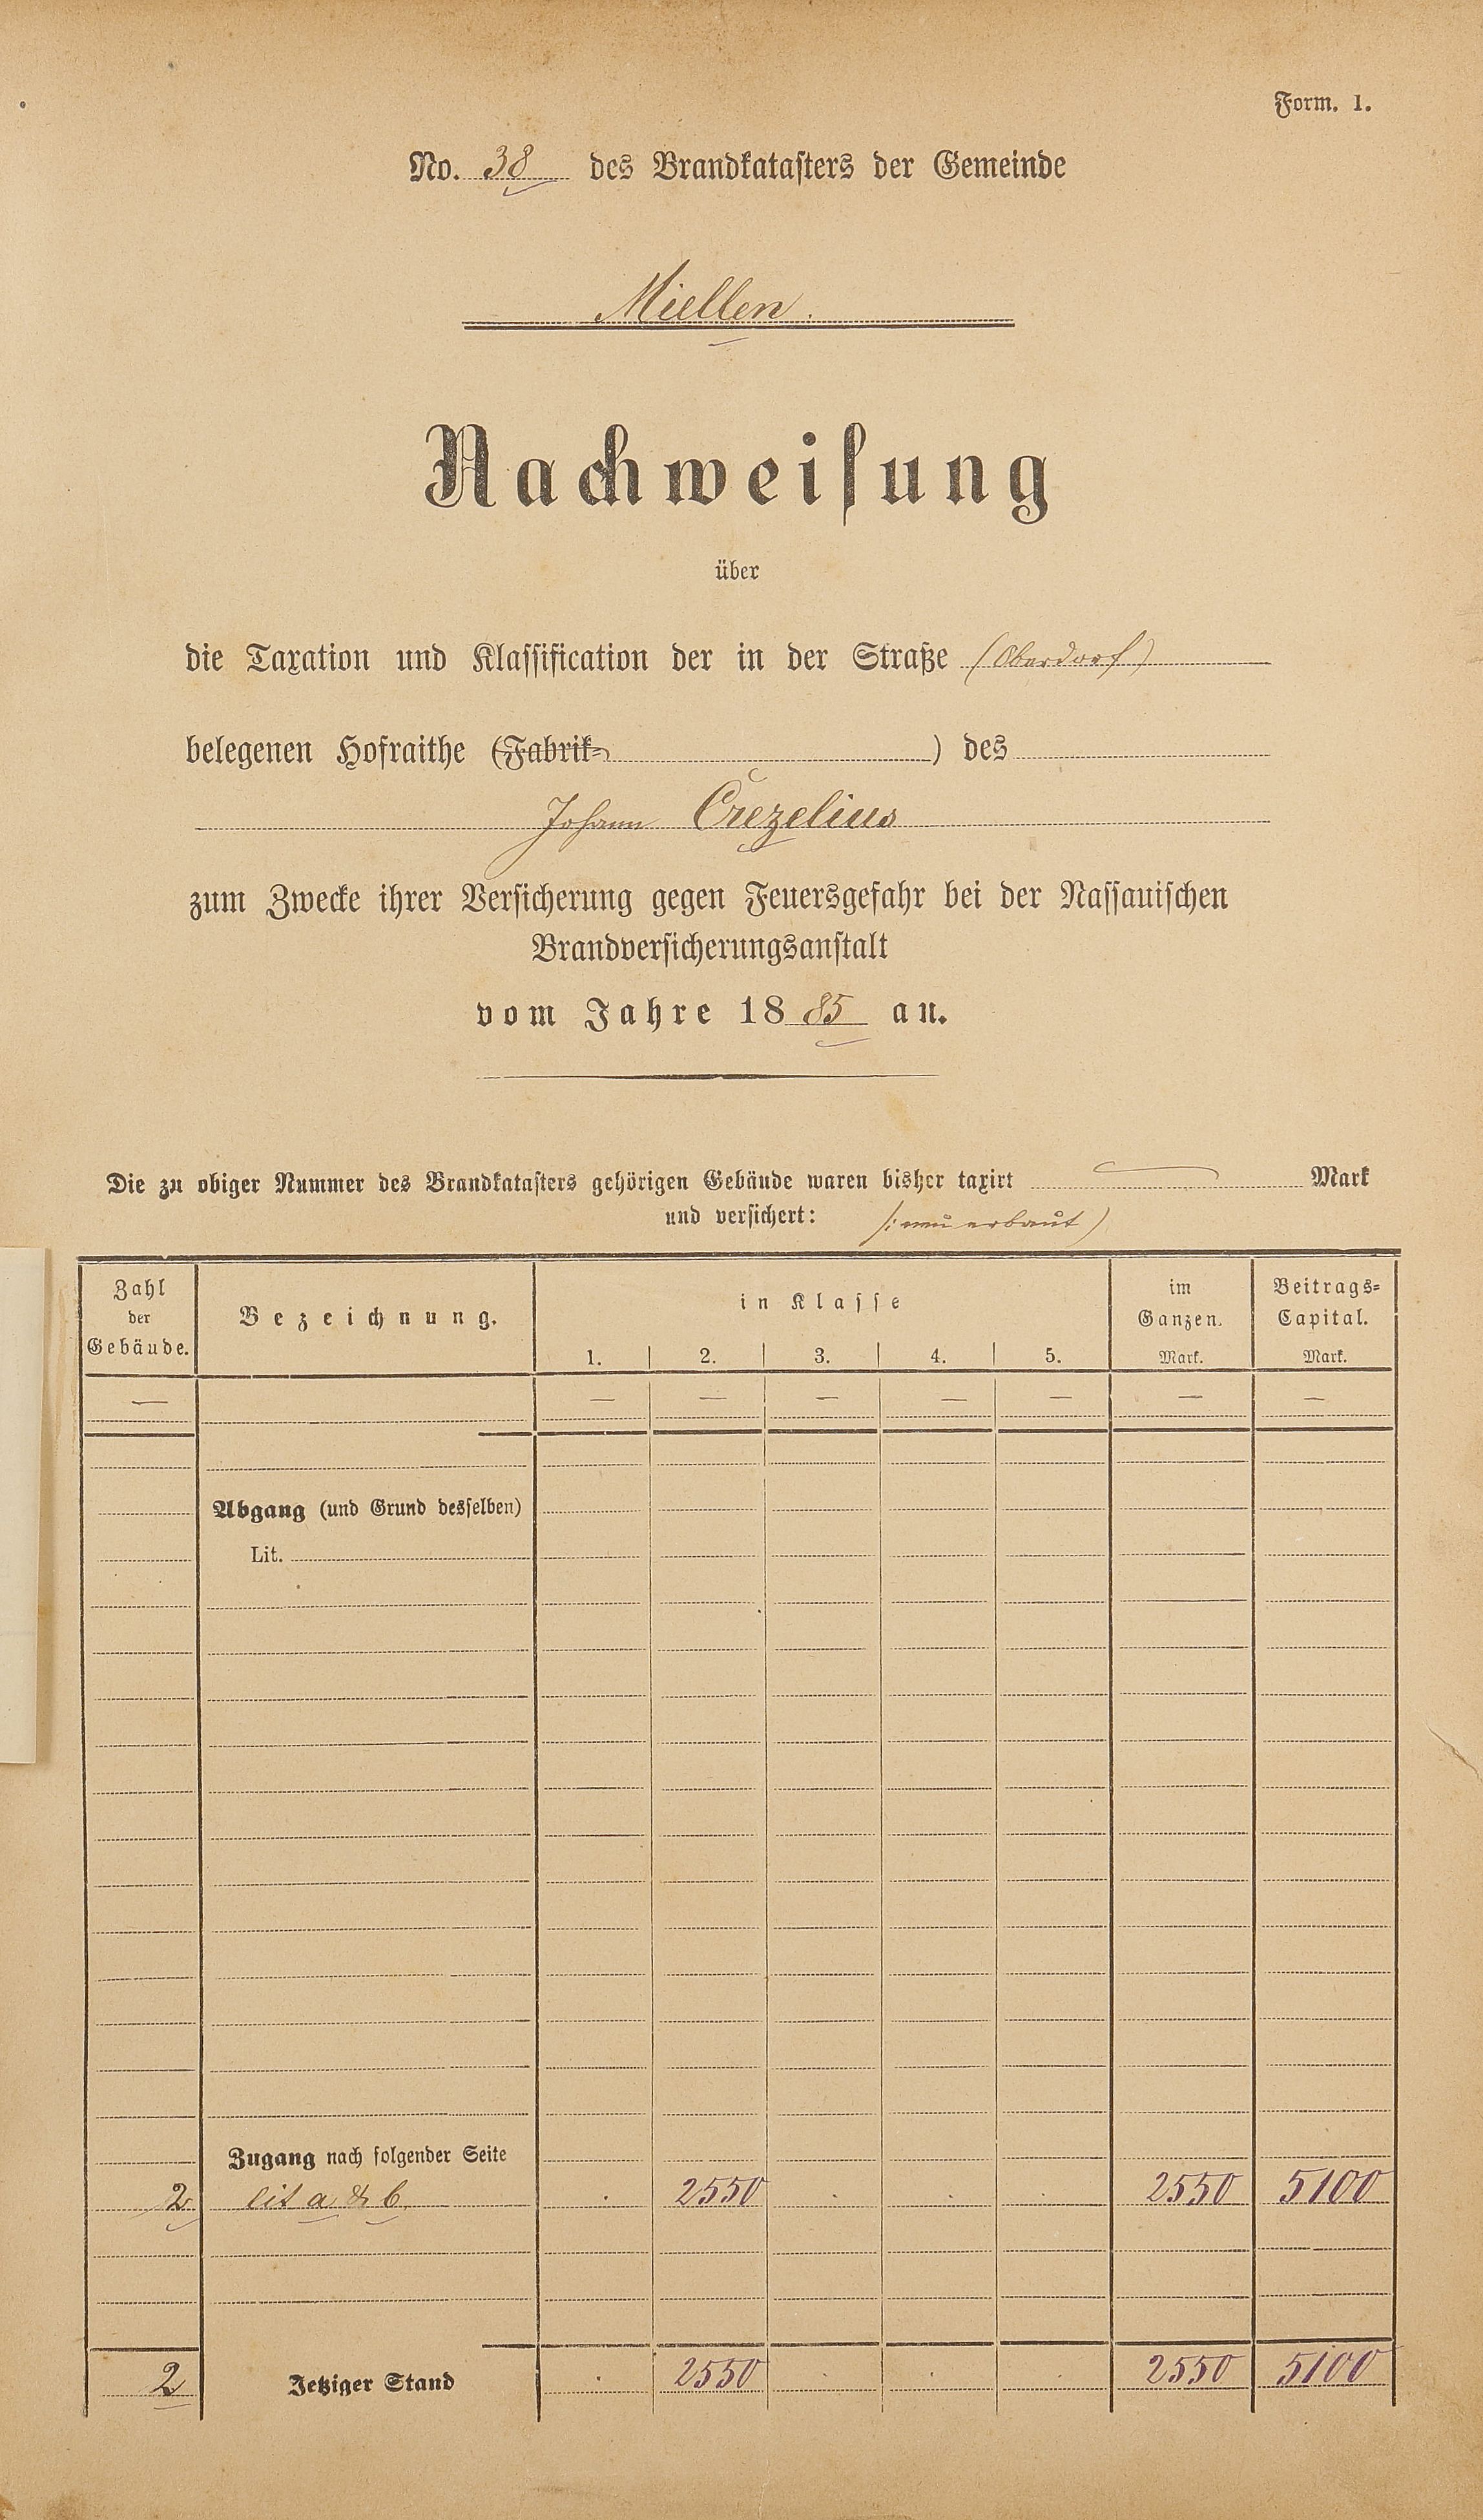 Form. 1.
No. 38 des Brandkatasters der Gemeinde
Miellen.
Nachweisung
über
die Taxation und Klassification der in der Straße (Oberdorf)
belegenen Hofraithe (Fabrik- ) des
Johann Crezelius
zum Zwecke ihrer Versicherung gegen Feuersgefahr bei der Nassauischen
Brandversicherungsanstalt
vom Jahre 1885 an.
Die zu obiger Nummer des Brandkatasters gehörigen Gebäude waren bisher taxirt — Mark
und versichert: /: neu erbaut )
Zahl der Gebäude. Bezeichnung. in Klasse im Ganzen. Beitrags-Capital.
1. 2. 3. 4. 5. Mark. Mark.
— — — — — — — —
Abgang (und Grund desselben)
Lit.
Zugang nach folgender Seite
2 lit a & b. . 2550 . . . 2550 5100
2 Jetziger Stand . 2550 . . . 2550 5100